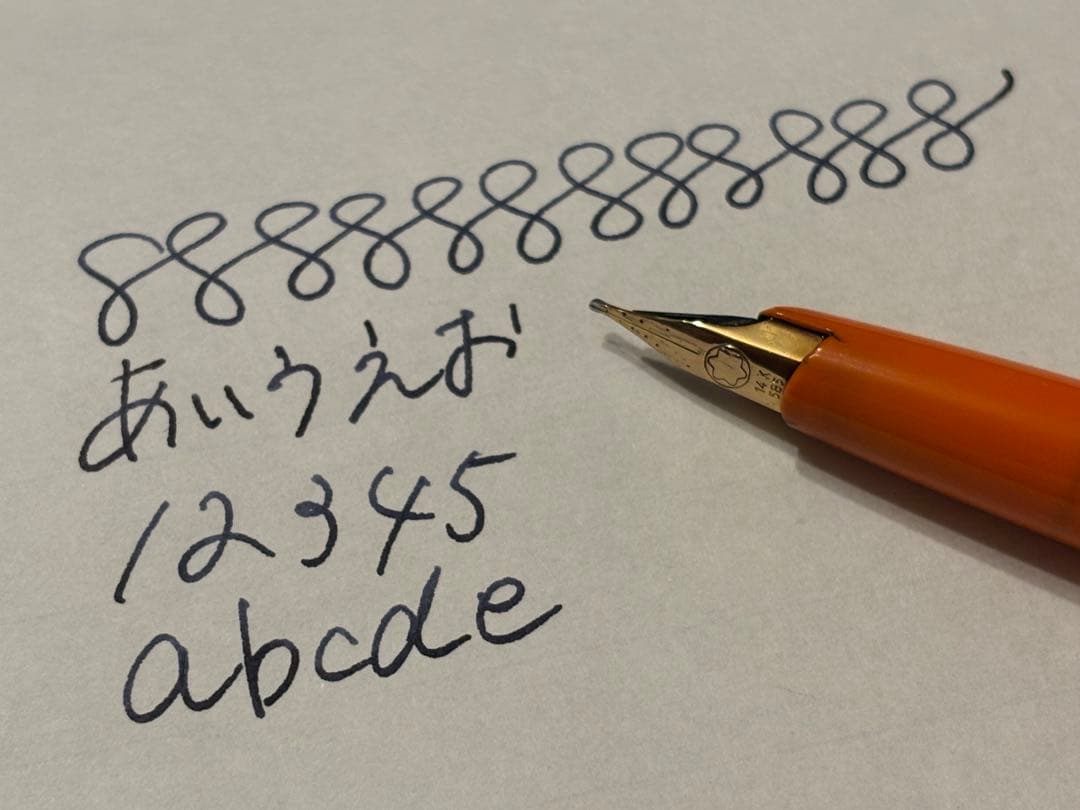 あいうえお
12345
abcde
14K
585